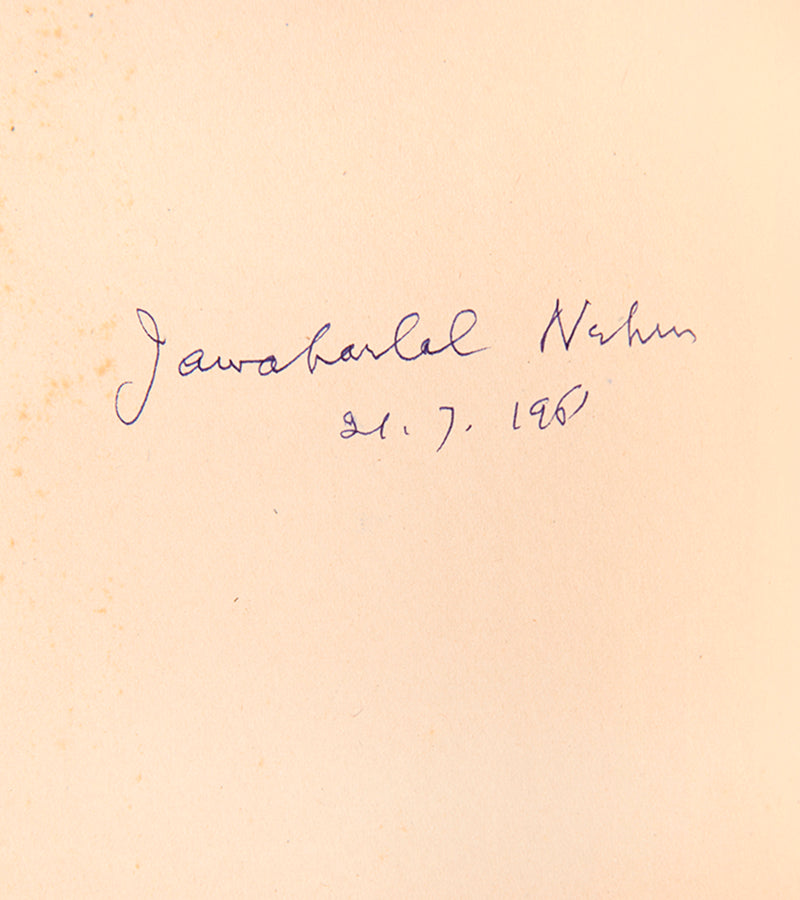 Jawaharlal Nehru
21. 7.